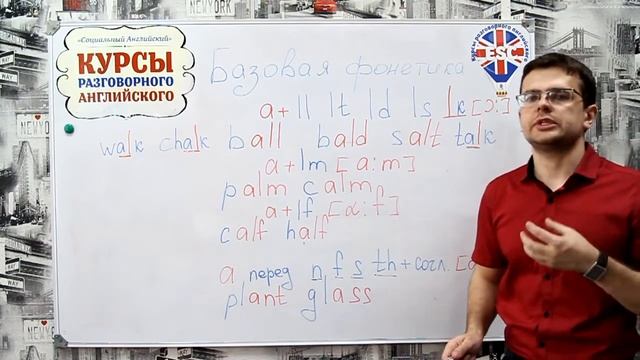 «Социальный Английский»
КУРСЫ
РАЗГОВОРНОГО
АНГЛИЙСКОГО
Базовая фонетика
Курсы разговорного английского
ESC
a+ll lt ld ls lk [ɔ:]
walk chalk ball bald salt talk
a+lm [a:m]
palm calm
a+lf [ɑ:f]
calf half
a перед n f s th+согл. [a
plant glass
NEW YORK